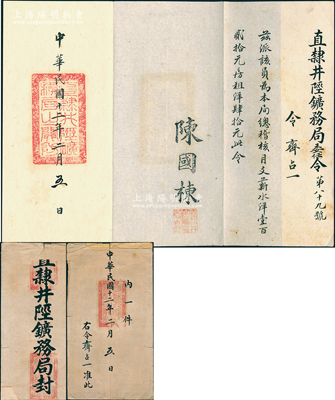 直隸井陘鑛務局委令第八十九號
令齊占一
茲派該員為本局總稽核月支薪水洋壹百
貳拾元房租洋肆拾元此令
陳國棟
中華民國十二年二月五日
直隸井陘鑛務局封
內一件
中華民國十二年二月五日
右令齊占一准此